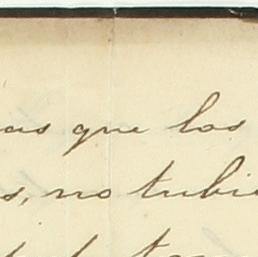 as que los
s, no tubi